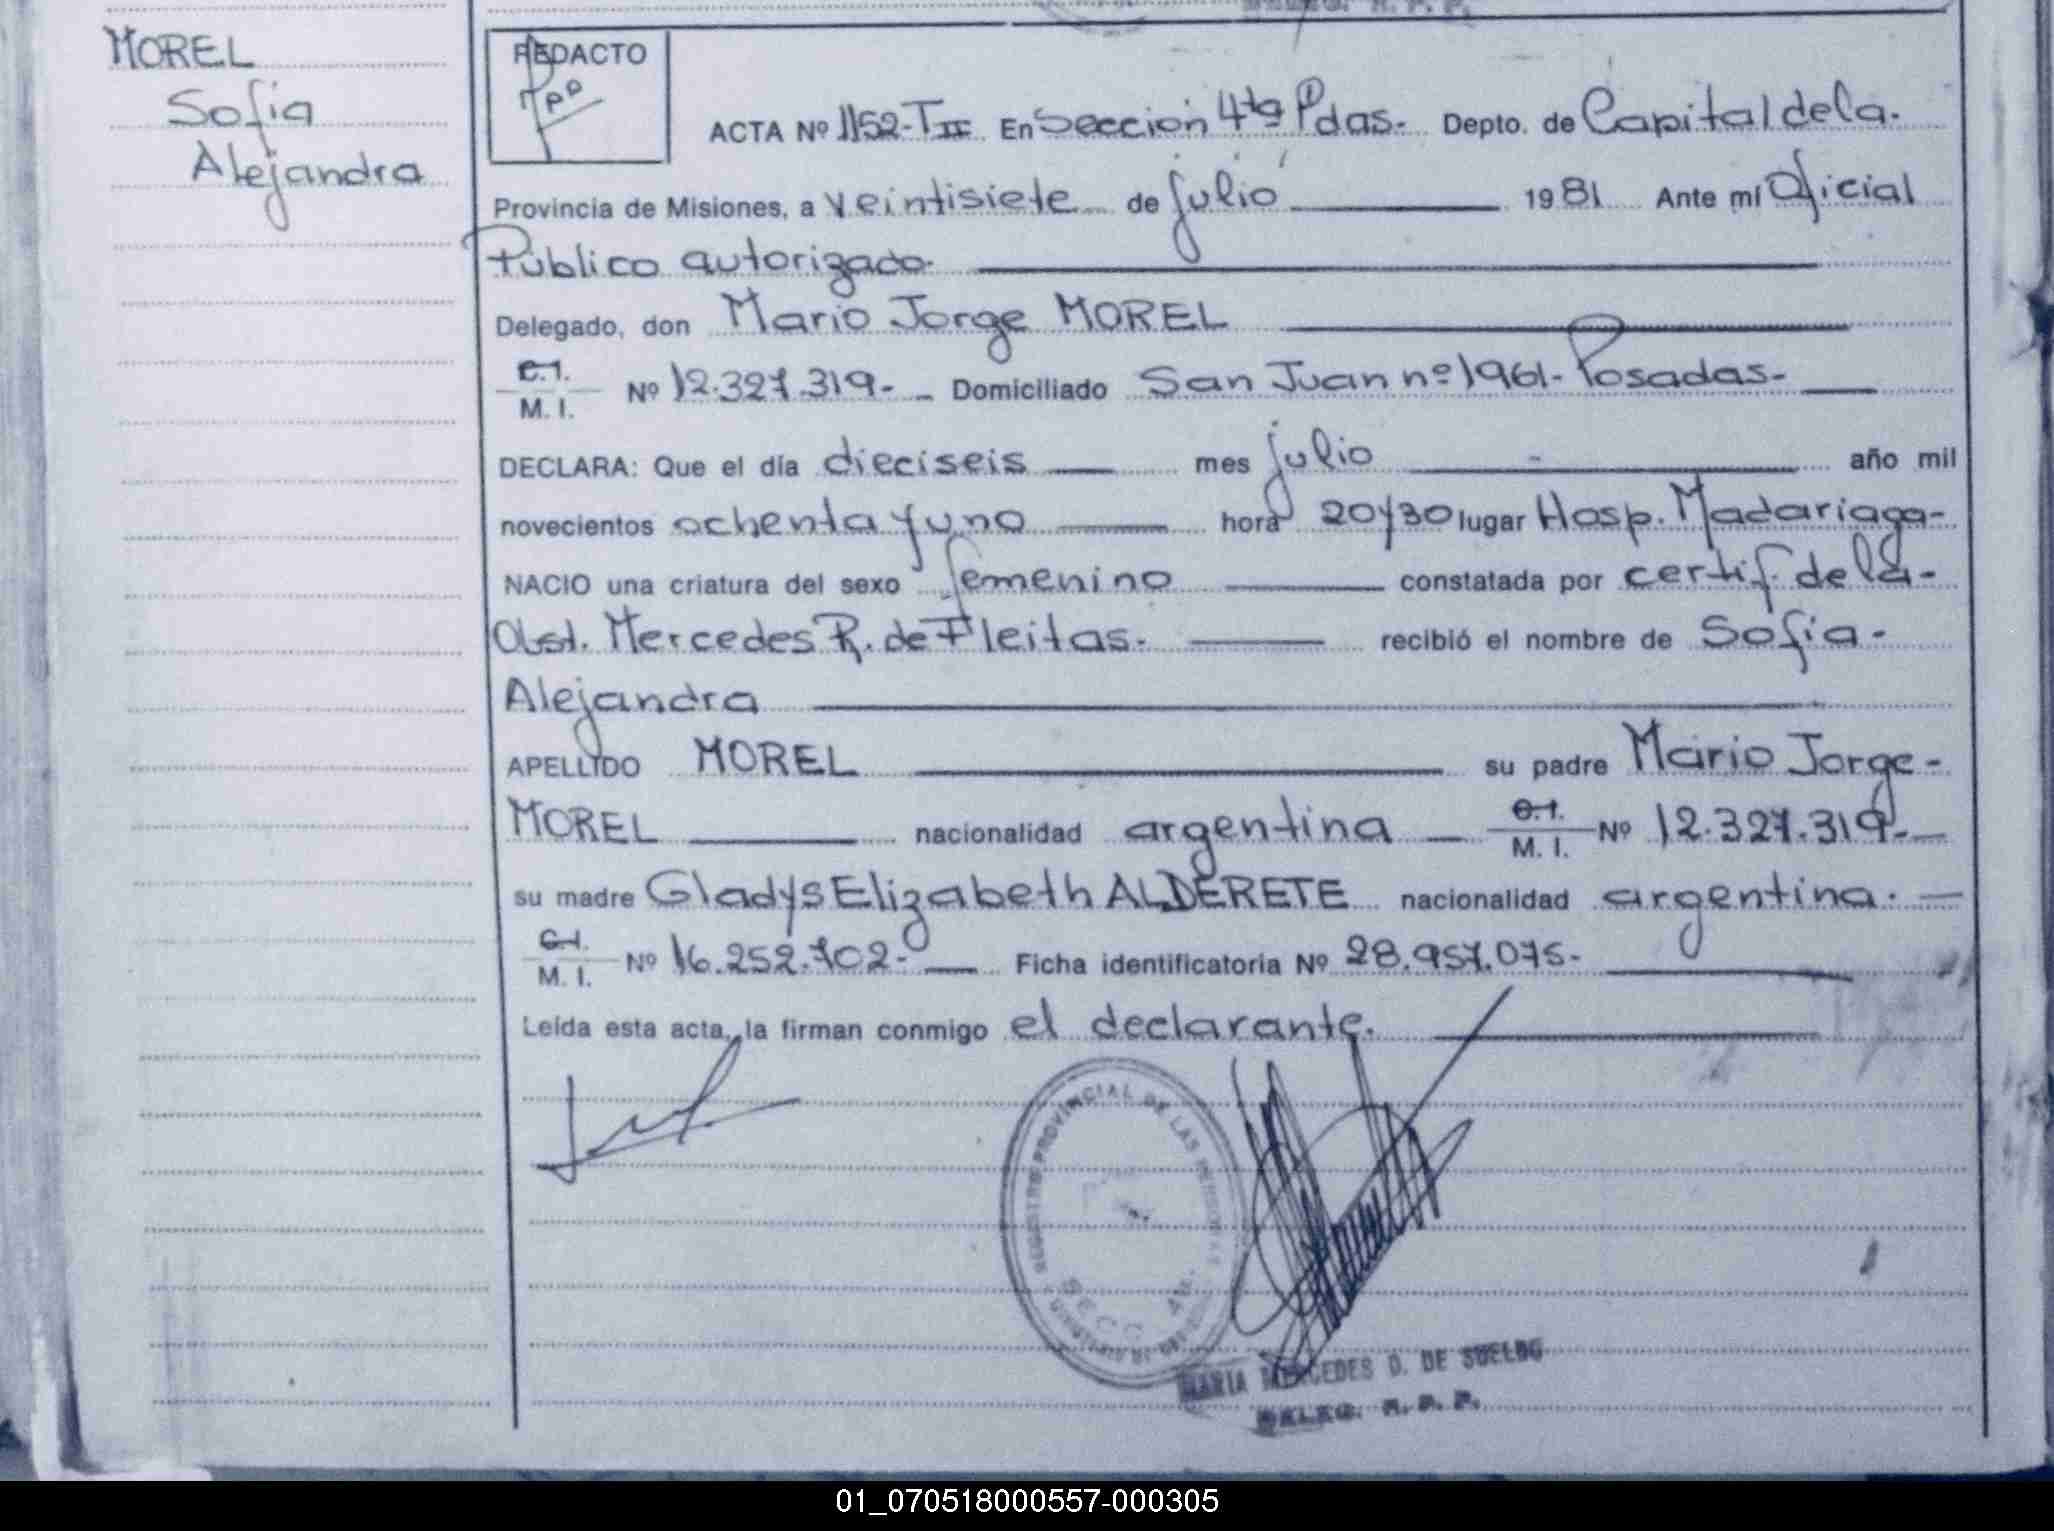 MOREL
Sofia
Alejandra
REDACTO
ACTA Nº 1152-TII En Sección 4ta Pdas- Depto. de Capital de la-
Provincia de Misiones, a veintisiete de julio 1981 Ante mí Oficial
Público autorizado-
Delegado, don Mario Jorge MOREL
C.I. M. I. Nº 12.327.319- Domiciliado San Juan nº 1961- Posadas-
DECLARA: Que el día dieciseis mes julio año mil
novecientos ochenta y uno hora 20y30 lugar Hosp. Madariaga-
NACIO una criatura del sexo femenino constatada por certif. de la-
Obst. Mercedes R. de Fleitas- recibió el nombre de Sofia-
Alejandra
APELLIDO MOREL su padre Mario Jorge-
MOREL nacionalidad argentina C.I. M. I. Nº 12.327.319-
su madre Gladys Elizabeth ALDERETE nacionalidad argentina.
C.I. M. I. Nº 16.252.702- Ficha identificatoria Nº 28.957.075-
Leída esta acta, la firman conmigo el declarante.
REGISTRO PROVINCIAL DE LAS
SECC.
MARIA MERCEDES D. DE SUELDO
DELEG. R. P. P.
01_070518000557-000305